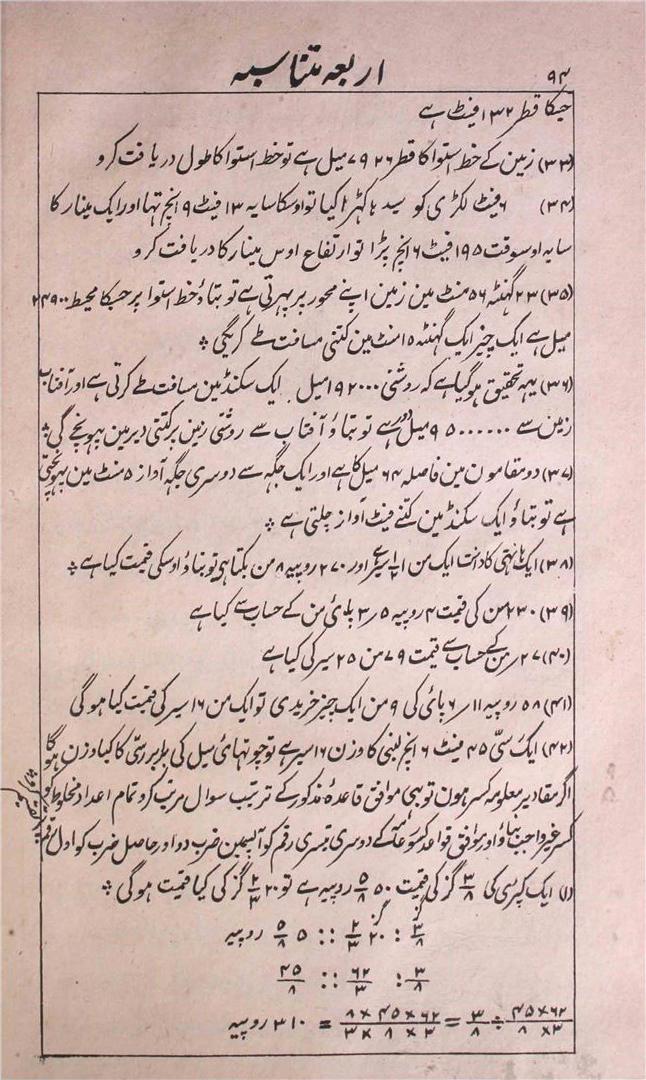 ۹۴
اربعہ متناسبہ
جسکا قطر ۱۳۲ فیٹ ہے
(۳۳) زمین کے خط استوا کا قطر ۷۹۲۶ میل ہے تو خط استوا کا طول دریافت کرو
(۳۴) ۶ فیٹ لکڑی کو سیدہا کہڑا کیا تو اوسکا سایہ ۱۳ فیٹ ۹ انچ تہا اور ایک مینار کا
سایہ اوسوقت ۱۹۵ فیٹ ۶ انچ پڑا تو ارتفاع اوس مینار کا دریافت کرو
(۳۵) ۲۳ گہنٹہ ۵۶ منٹ مین زمین اپنے محور پر پہرتی ہے تو بتاؤ خط استوا پر جسکا محیط ۲۴۹۰۰
میل ہے ایک چیز ایک گہنٹہ ۱۵ منٹ مین کتنی مسافت طے کریگی
(۳۶) یہہ تحقیق ہو گیا ہے کہ روشنی ۱۹۲۰۰۰ میل ایک سکنڈ مین مسافت طے کرتی ہے اور آفتاب
زمین سے ۹۵۰۰۰۰۰۰ میل دور ہے تو بتاؤ آفتاب سے روشنی زمین پر کتنی دیر مین پہونچے گی
(۳۷) دو مقامون مین فاصلہ ۶۴ میل کا ہے اور ایک جگہہ سے دوسری جگہ آواز ۵ منٹ مین پہونچتی
ہے تو بتاؤ ایک سکنڈ مین کتنے فیٹ آواز چلتی ہے
(۳۸) ایک ہاتہی کا دانت ایک من سیر اور ۲۷۰ روپیہ ۸ من بکتا ہی تو بتاؤ اوسکی قیمت کیا ہے
(۳۹) ۲۳۰ من کی قیمت ۴ روپیہ ۵ ۳ پائی من کے حساب سے کیا ہے
(۴۰) ۲۷ من کے حساب سے قیمت ۷۹ من ۲۵ سیر کی کیا ہے
(۴۱) ۵۸ روپیہ ۱۱ ۶ پائی کی ۹ من ایک چیز خریدی تو ایک من ۱۶ سیر کی قیمت کیا ہو گی
(۴۲) ایک رسّی ۴۵ فیٹ ۶ انچ لنبی کا وزن ۱۶ سیر ہے تو چوتہائی میل کی برابر رسّی کا کیا وزن ہو گا
اگر مقادیر معلومہ کسر ہون تو بہی موافق قاعدۂ مذکور کے ترتیب سوال مرتب کرو تمام اعداد مخلوط کو
کسر غیر واجب بناؤ اور موافق قواعد کے دوسری تیسری رقم کو آپسمین ضرب دو اور حاصل ضرب کو اول رقم
(۱) ایک کپڑی کی ۳/۸ گز کی قیمت ۵ ۵/۸ روپیہ ہے تو ۲۰ ۲/۳ گز کی کیا قیمت ہو گی
۳/۸ گز : ۲۰ ۲/۳ گز :: ۵ ۵/۸ روپیہ
۳/۸ : ۶۲/۳ :: ۴۵/۸
۴۵×۶۲/۸×۳ ÷ ۳/۸ = ۸×۴۵×۶۲/۳×۸×۳ = ۳۱۰ روپیہ